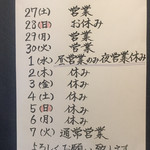 27(土) 営業
28(日) お休み
29(月) 営業
30(火) 営業
1(水) 昼営業のみ夜営業休み
2(木) 休み
3(金) 休み
4(土) 休み
5(日) 休み
6(月) 休み
7(火) 通常営業
よろしくお願い致します